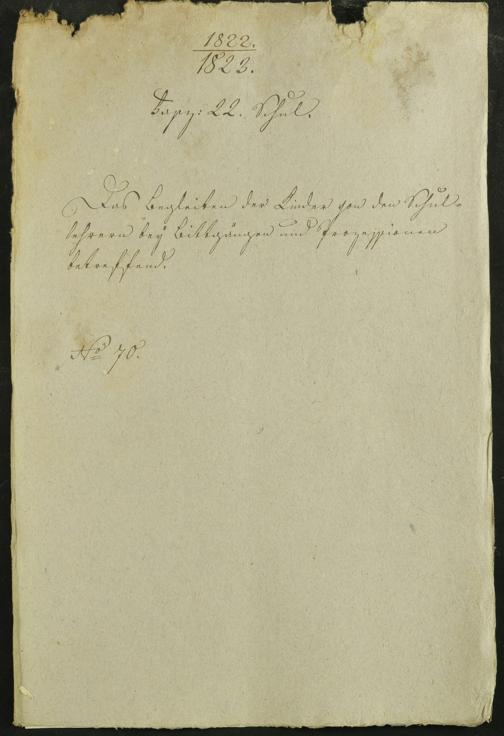 1822.
1823.
Kapp: 22. Schul.
Das Begleiten der Kinder von den Schul-
lehrern bey Bittgängen und Prozessionen
betreffend.
No 70.